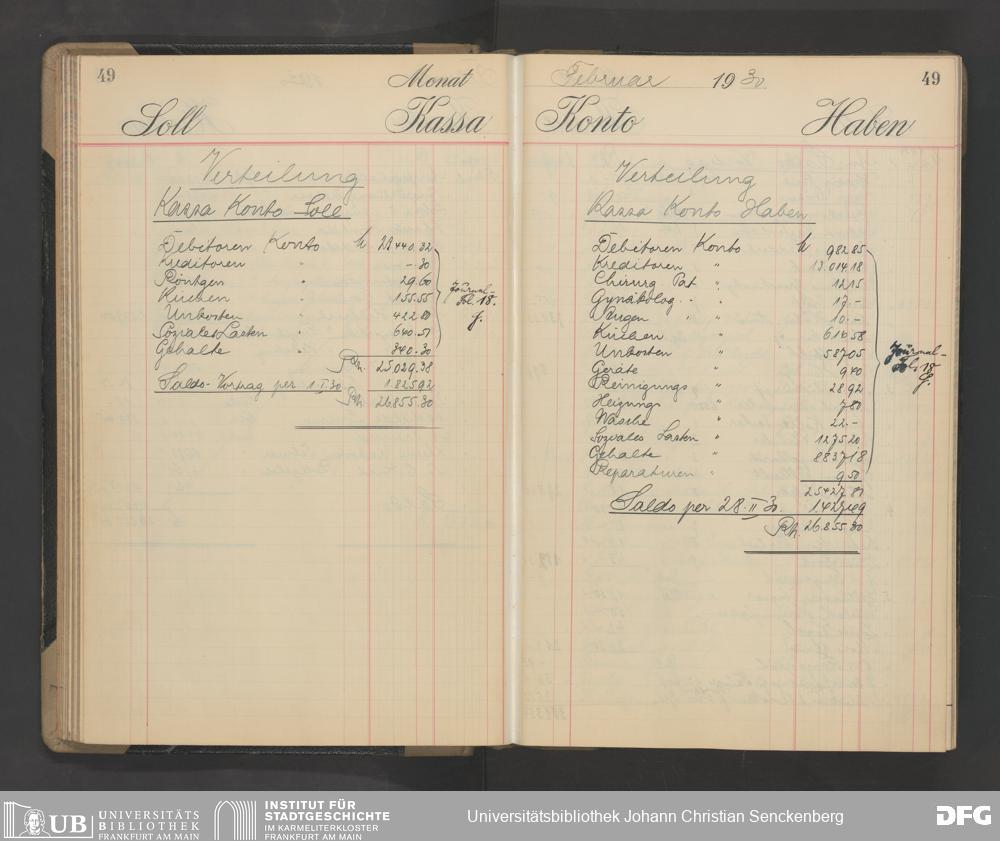 49 Monat Februar 1930 49
Soll Kassa Konto Haben
Verteilung
Kassa Konto Soll
Debitoren Konto M 23440.32
Kreditoren " -.30
Röntgen " 29.60
Küchen " 155.55
Unkosten " 422.80
Soziales Lasten " 640.51
Gehalte " 340.30
Journal-
Fol. 18.
Rm. 25029.38
Saldo-Vortrag per 1.II.30 1825.92
Rm. 26855.30
Verteilung
Kassa Konto Haben
Debitoren Konto M 982.85
Kreditoren " 13.014.18
Chirurg Pat " 12.15
Gynäkolog. " 17.-
" " 10.-
Küchen " 614.58
Unkosten " 587.05
Geräte " 9.40
Reinigungs " 28.92
Heizungs " 7.80
Wäsche " 22.-
Soziales Lasten " 1275.20
Gehalte " 8837.18
Reparaturen " 9.50
Journal-
Fol. 18
25427.81
Saldo per 28.II.30. 1427.49
Rm. 26.855.30
UB UNIVERSITÄTS
BIBLIOTHEK
FRANKFURT AM MAIN
INSTITUT FÜR
STADTGESCHICHTE
IM KARMELITERKLOSTER
FRANKFURT AM MAIN
Universitätsbibliothek Johann Christian Senckenberg
DFG